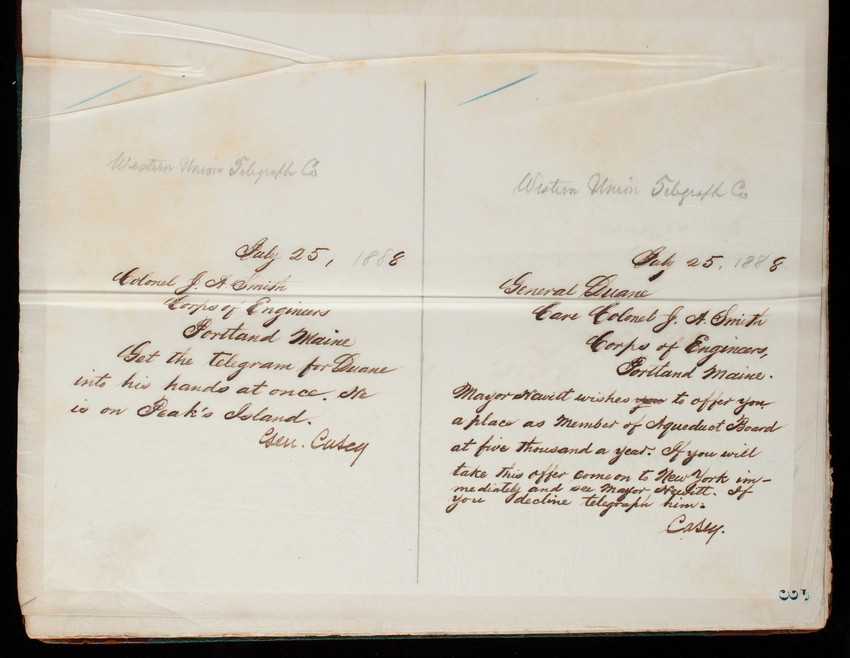 Western Union Telegraph Co
July 25, 1888
Colonel J. A. Smith
Corps of Engineers
Portland Maine
Get the telegram for Duane
into his hands at once. He
is on Peak's Island.
Gen. Casey
Western Union Telegraph Co
July 25, 1888
General Duane
Care Colonel J. A. Smith
Corps of Engineers,
Portland Maine.
Mayor Hewitt wishes you to offer you
a place as Member of Aqueduct Board
at five thousand a year. If you will
take this offer come on to New York im-
mediately and see Mayor Hewitt. If
you decline telegraph him.
Casey.